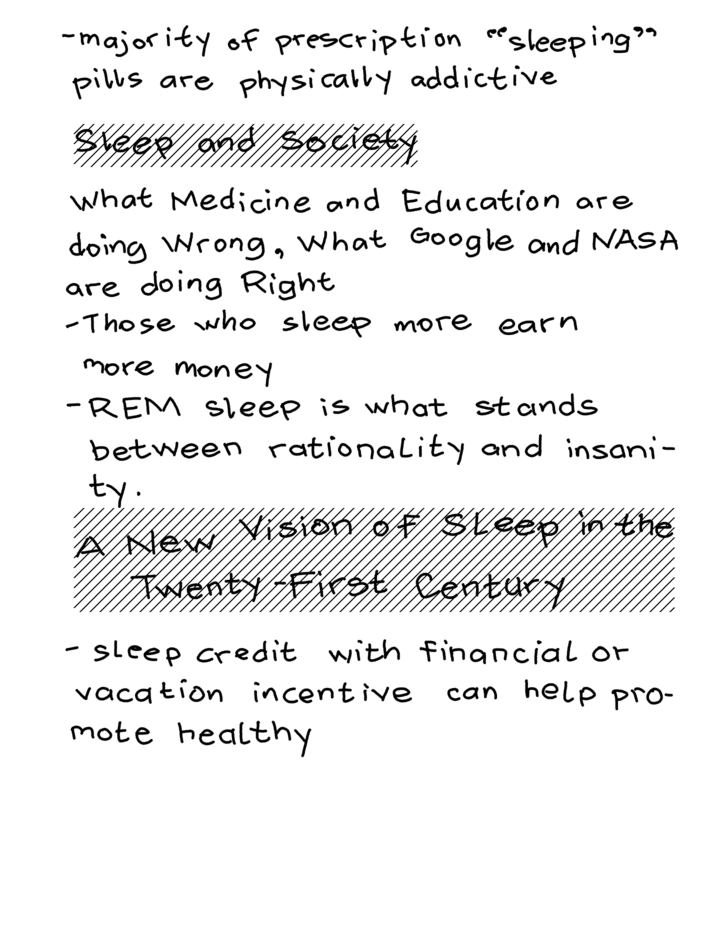 -majority of prescription “sleeping”
pills are physically addictive
Sleep and Society
What Medicine and Education are
doing Wrong, What Google and NASA
are doing Right
-Those who sleep more earn
more money
-REM sleep is what stands
between rationality and insani-
ty.
A New Vision of Sleep in the
Twenty-First Century
- sleep credit with financial or
vacation incentive can help pro-
mote healthy